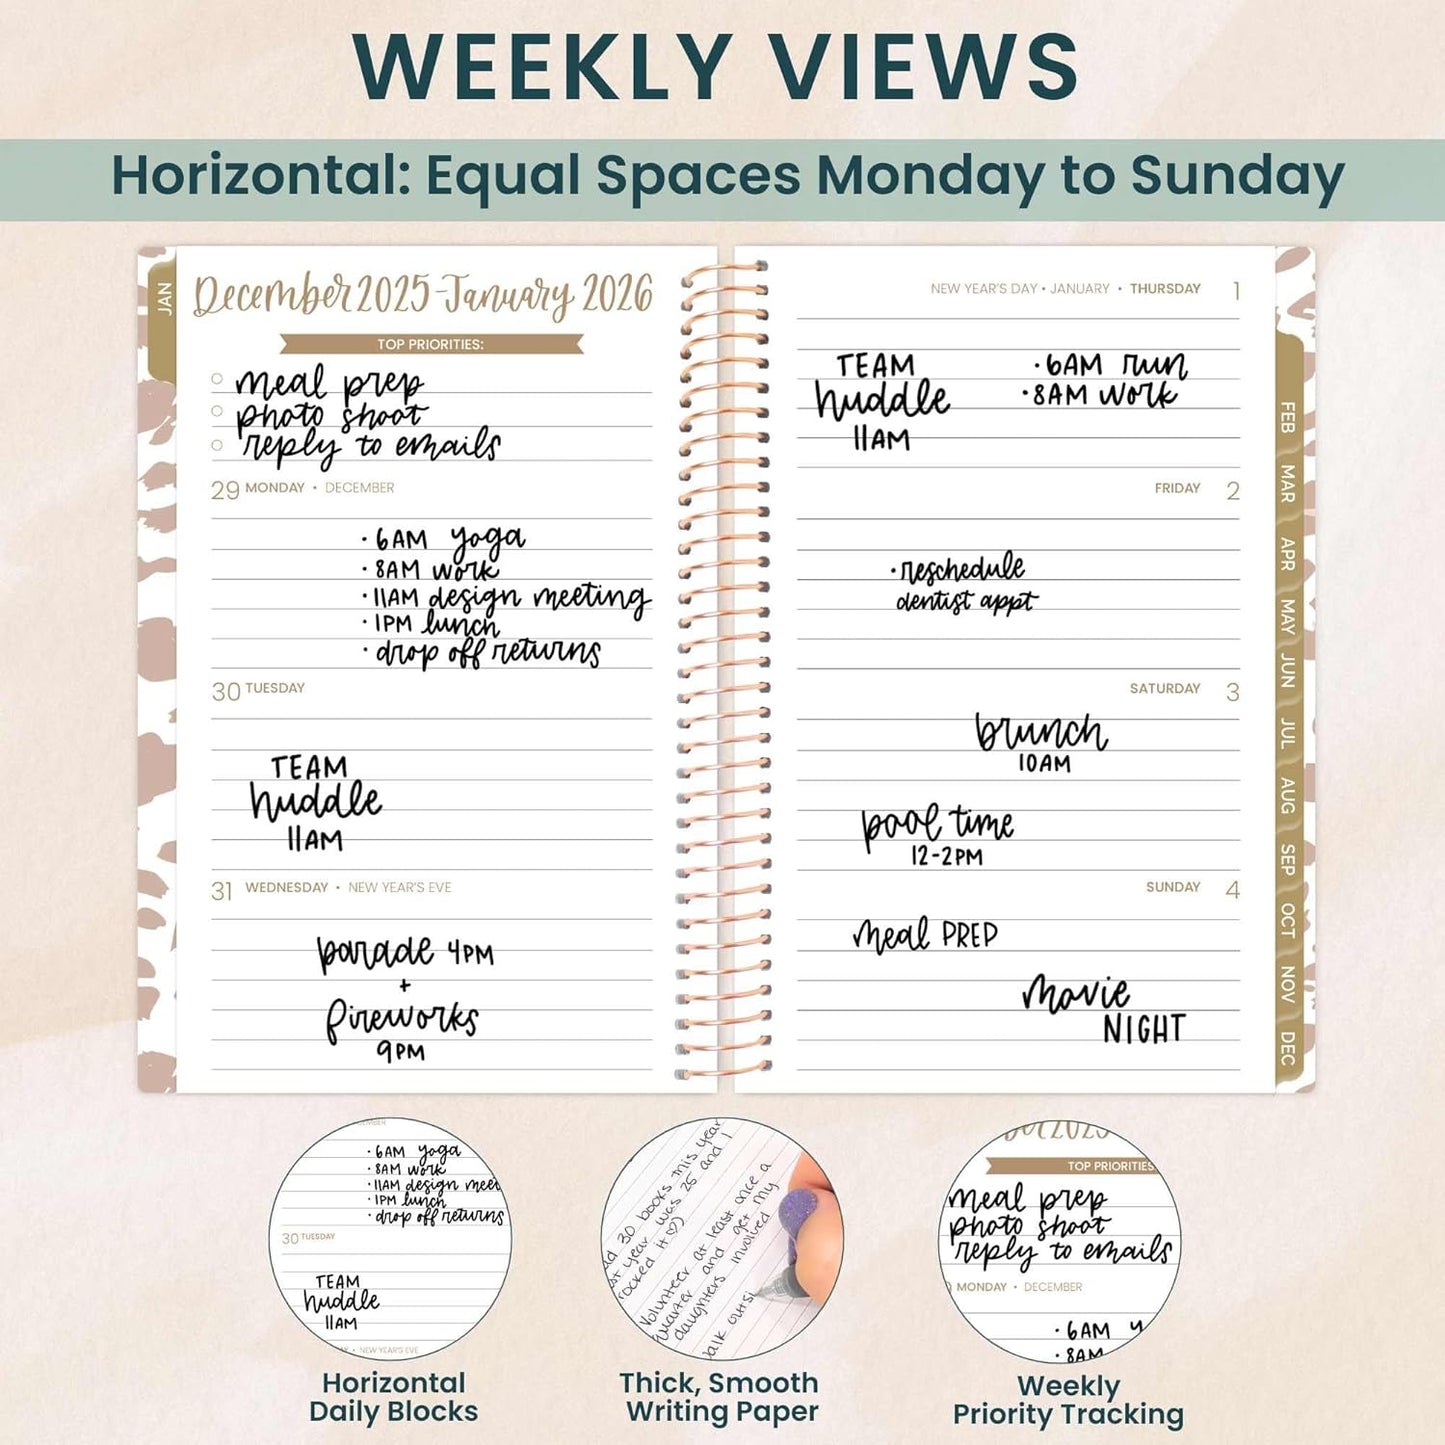 WEEKLY VIEWS
Horizontal: Equal Spaces Monday to Sunday
JAN
December 2025-January 2026
TOP PRIORITIES:
meal prep
photo shoot
reply to emails
29 MONDAY • DECEMBER
• 6AM yoga
• 8AM work
• 11AM design meeting
• 1PM lunch
• drop off returns
30 TUESDAY
TEAM
huddle
11AM
31 WEDNESDAY • NEW YEAR'S EVE
parade 4PM
+
fireworks
9PM
NEW YEAR'S DAY • JANUARY • THURSDAY 1
TEAM
huddle
11AM
• 6AM run
• 8AM work
FRIDAY 2
• reschedule
dentist appt
SATURDAY 3
brunch
10AM
pool time
12-2PM
SUNDAY 4
meal PREP
movie
NIGHT
FEB
MAR
APR
MAY
JUN
JUL
AUG
SEP
OCT
NOV
DEC
• 6AM yoga
• 8AM work
• 11AM design meet
• 1PM lunch
• drop off returns
30 TUESDAY
TEAM
huddle
11AM
NEW YEAR'S EVE
Horizontal
Daily Blocks
30 books this year
year was 25 and I
rocked it
Volunteer at least once a
quarter and get my
daughters involved
outsi
Thick, Smooth
Writing Paper
2025
TOP PRIORITIES
meal prep
photo shoot
reply to emails
MONDAY • DECEMBER
• 6AM y
• 8AM
Weekly
Priority Tracking